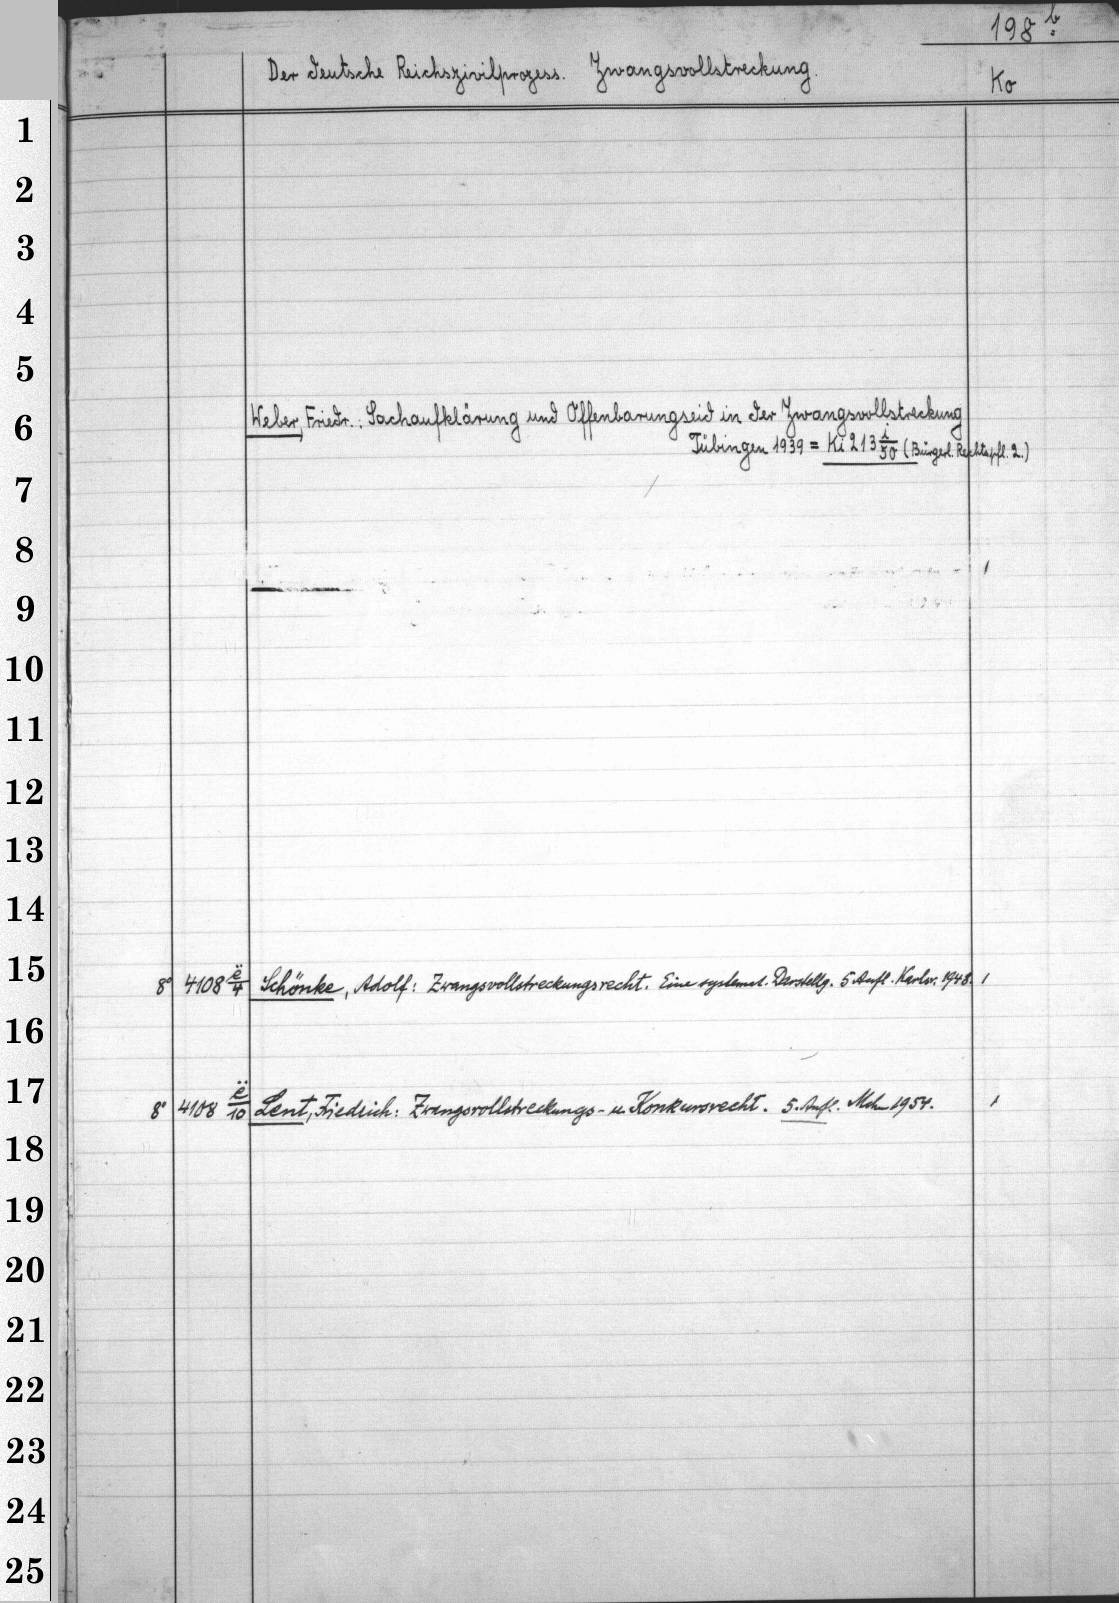 198 b
Der deutsche Reichszivilprozess. Zwangsvollstreckung.
Ko
1
2
3
4
5
6
Weber, Friedr.: Sachaufklärung und Offenbarungseid in der Zwangsvollstreckung
Tübingen 1939 = Ki 213 i/50 (Bürgerl. Rechtspfl. 2.)
7
8
9
10
11
12
13
14
15
8° 4108 ë/4 Schönke, Adolf: Zwangsvollstreckungsrecht. Eine systemat. Darstellg. 5. Aufl. Karlsr. 1948. 1
16
17
8° 4108 ë/10 Lent, Friedrich: Zwangsvollstreckungs- u. Konkursrecht. 5. Aufl. Mchn 1954. 1
18
19
20
21
22
23
24
25